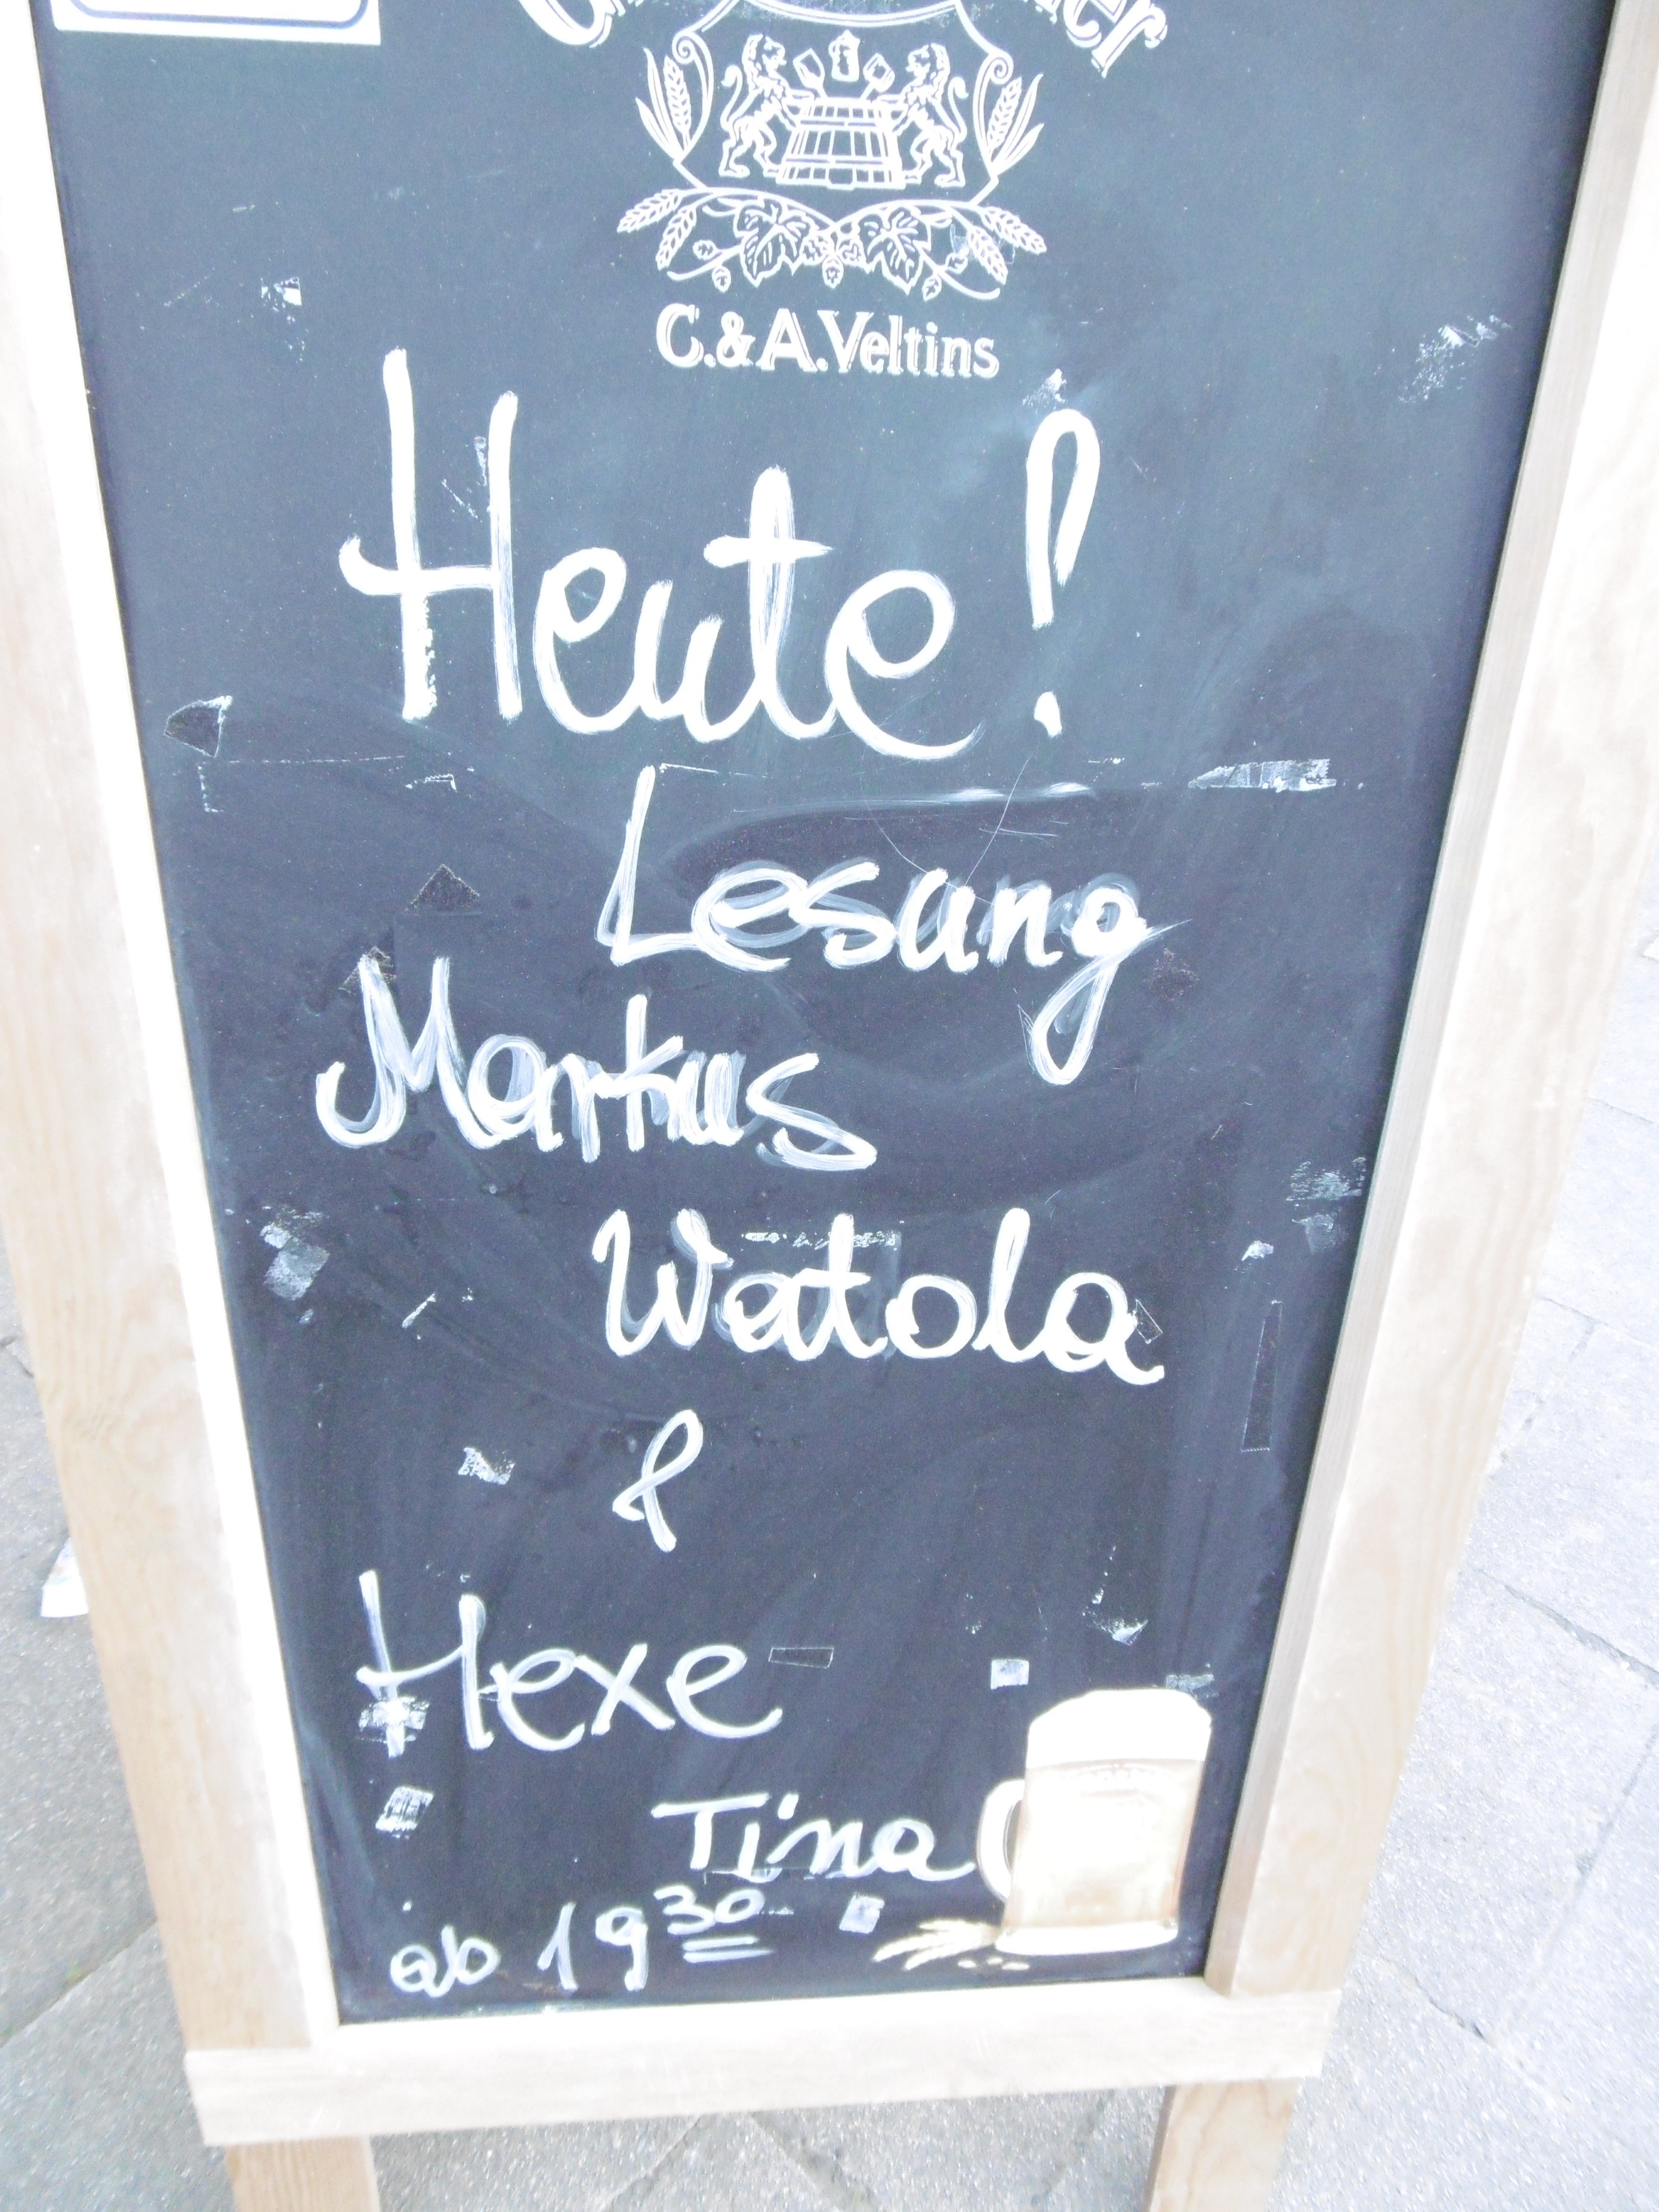 C.&A.Veltins
Heute!
Lesung
Markus
Watola
&
Hexe
Tina
ab 19³⁰